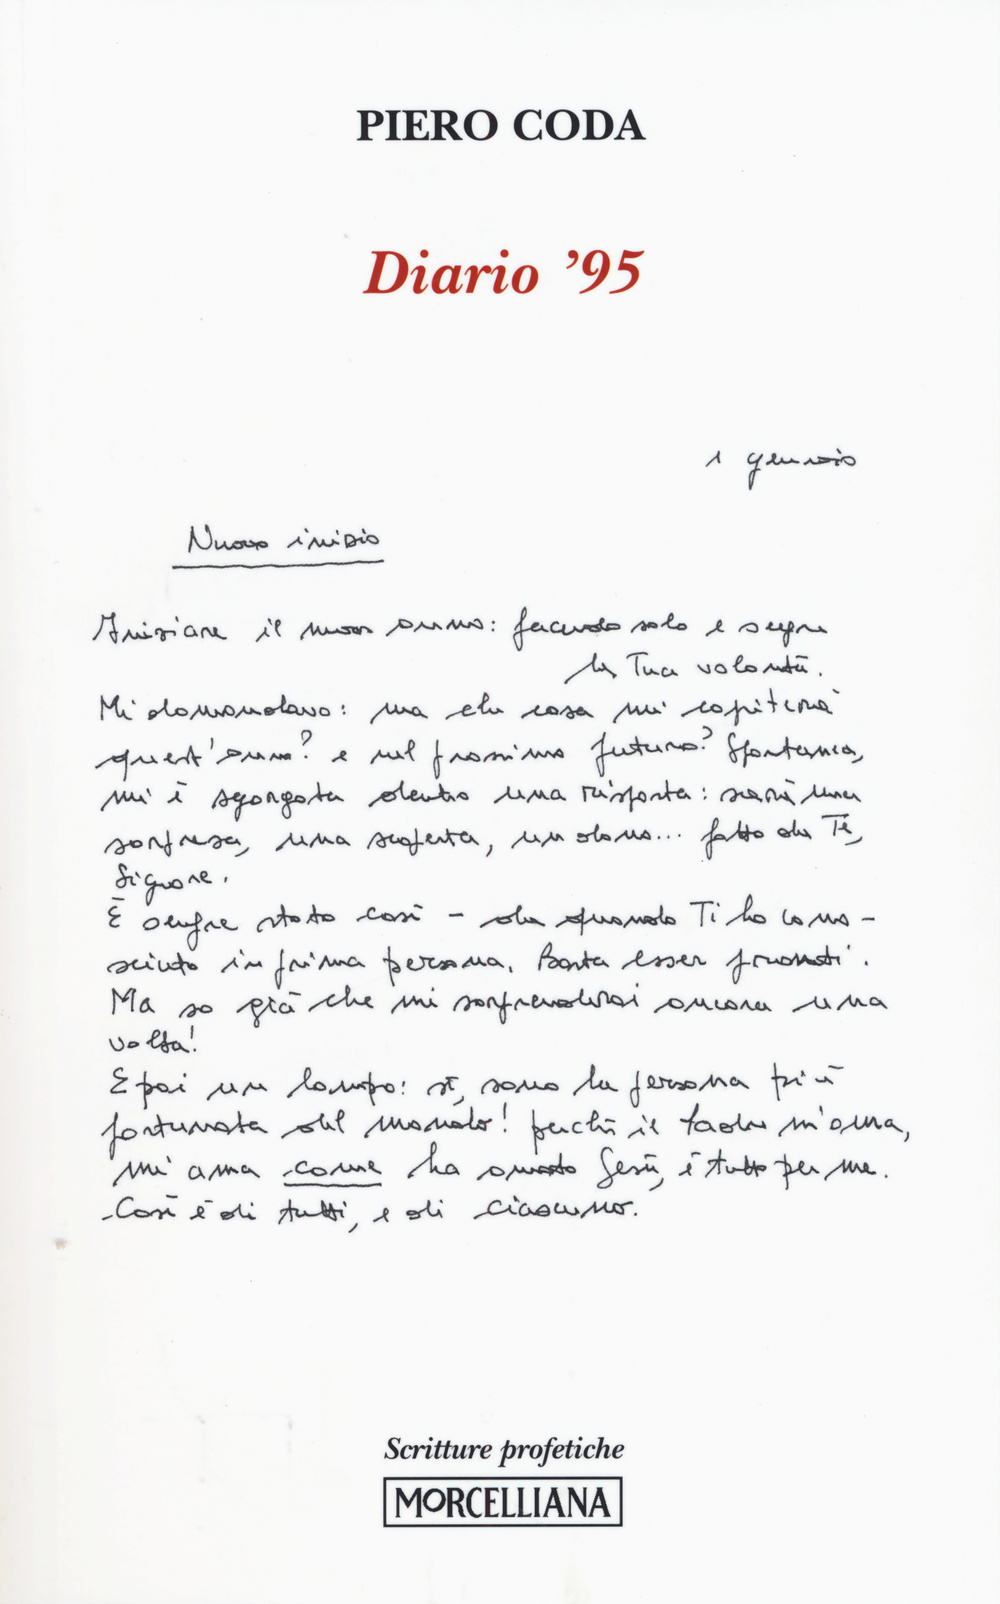 PIERO CODA
Diario ’95
1 gennaio
Nuovo inizio
Iniziare il nuovo anno: facendo solo e sempre
la Tua volontà.
Mi domandavo: ma che cosa mi capiterà
quest'anno? e nel prossimo futuro? Spontanea,
mi è sgorgata dentro una risposta: sarà una
sorpresa, una scoperta, un dono... fatto da Te,
Signore.
È sempre stato così – da quando Ti ho cono-
sciuto in prima persona. Basta esser pronti.
Ma so già che mi sorprenderai ancora una
volta!
E poi un lampo: sì, sono la persona più
fortunata del mondo! perché il Padre m'ama,
mi ama come ha amato Gesù, è tutto per me.
Così è di tutti, e di ciascuno.
Scritture profetiche
MORCELLIANA